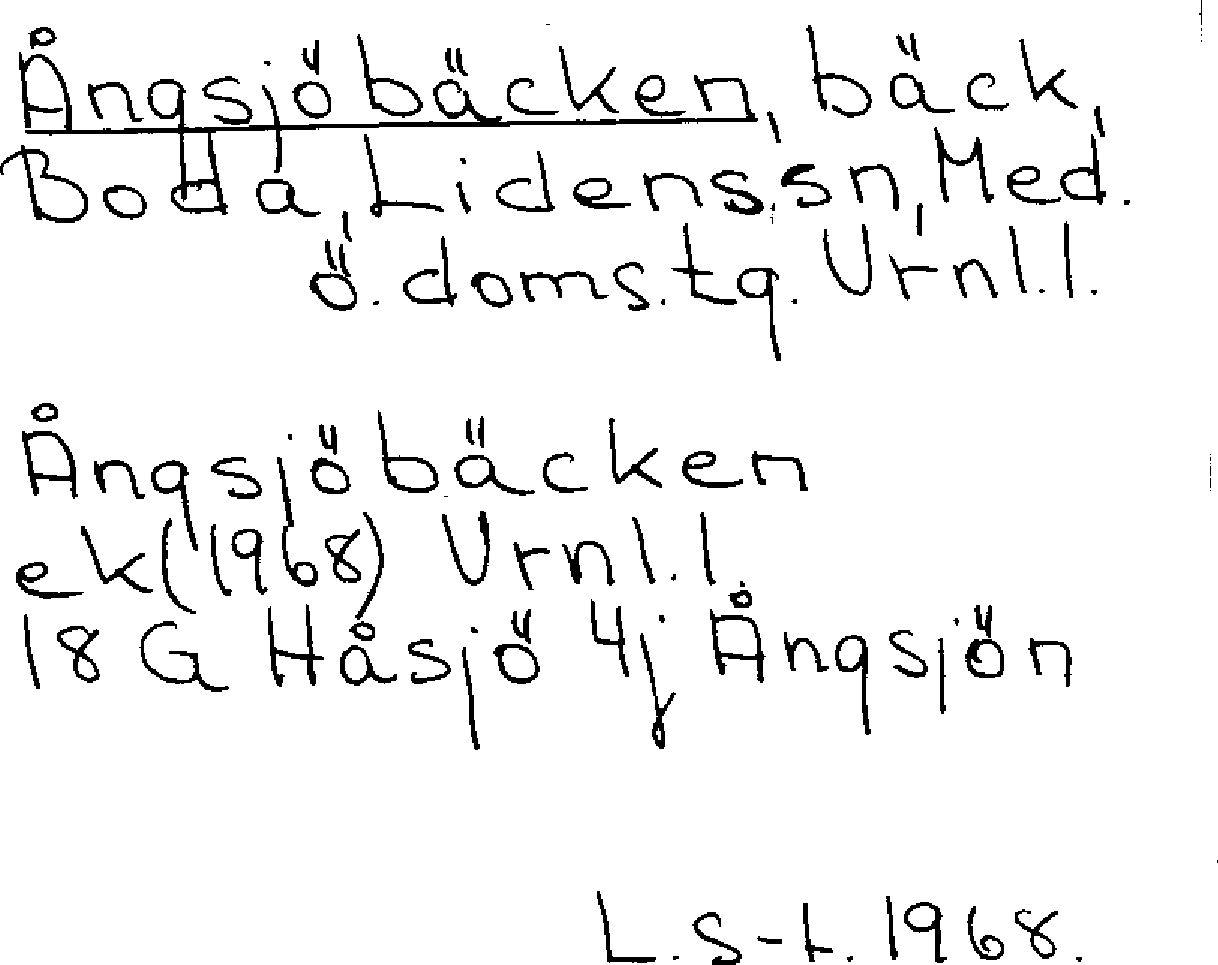 Ångsjöbäcken, bäck,
Boda, Lidens sn, Med.
ö. doms. tg. Vrnl.l.
Ångsjöbäcken
ek(1968) Vrnl.l.
18 G Håsjö 4j Ångsjön
L.S-t. 1968.